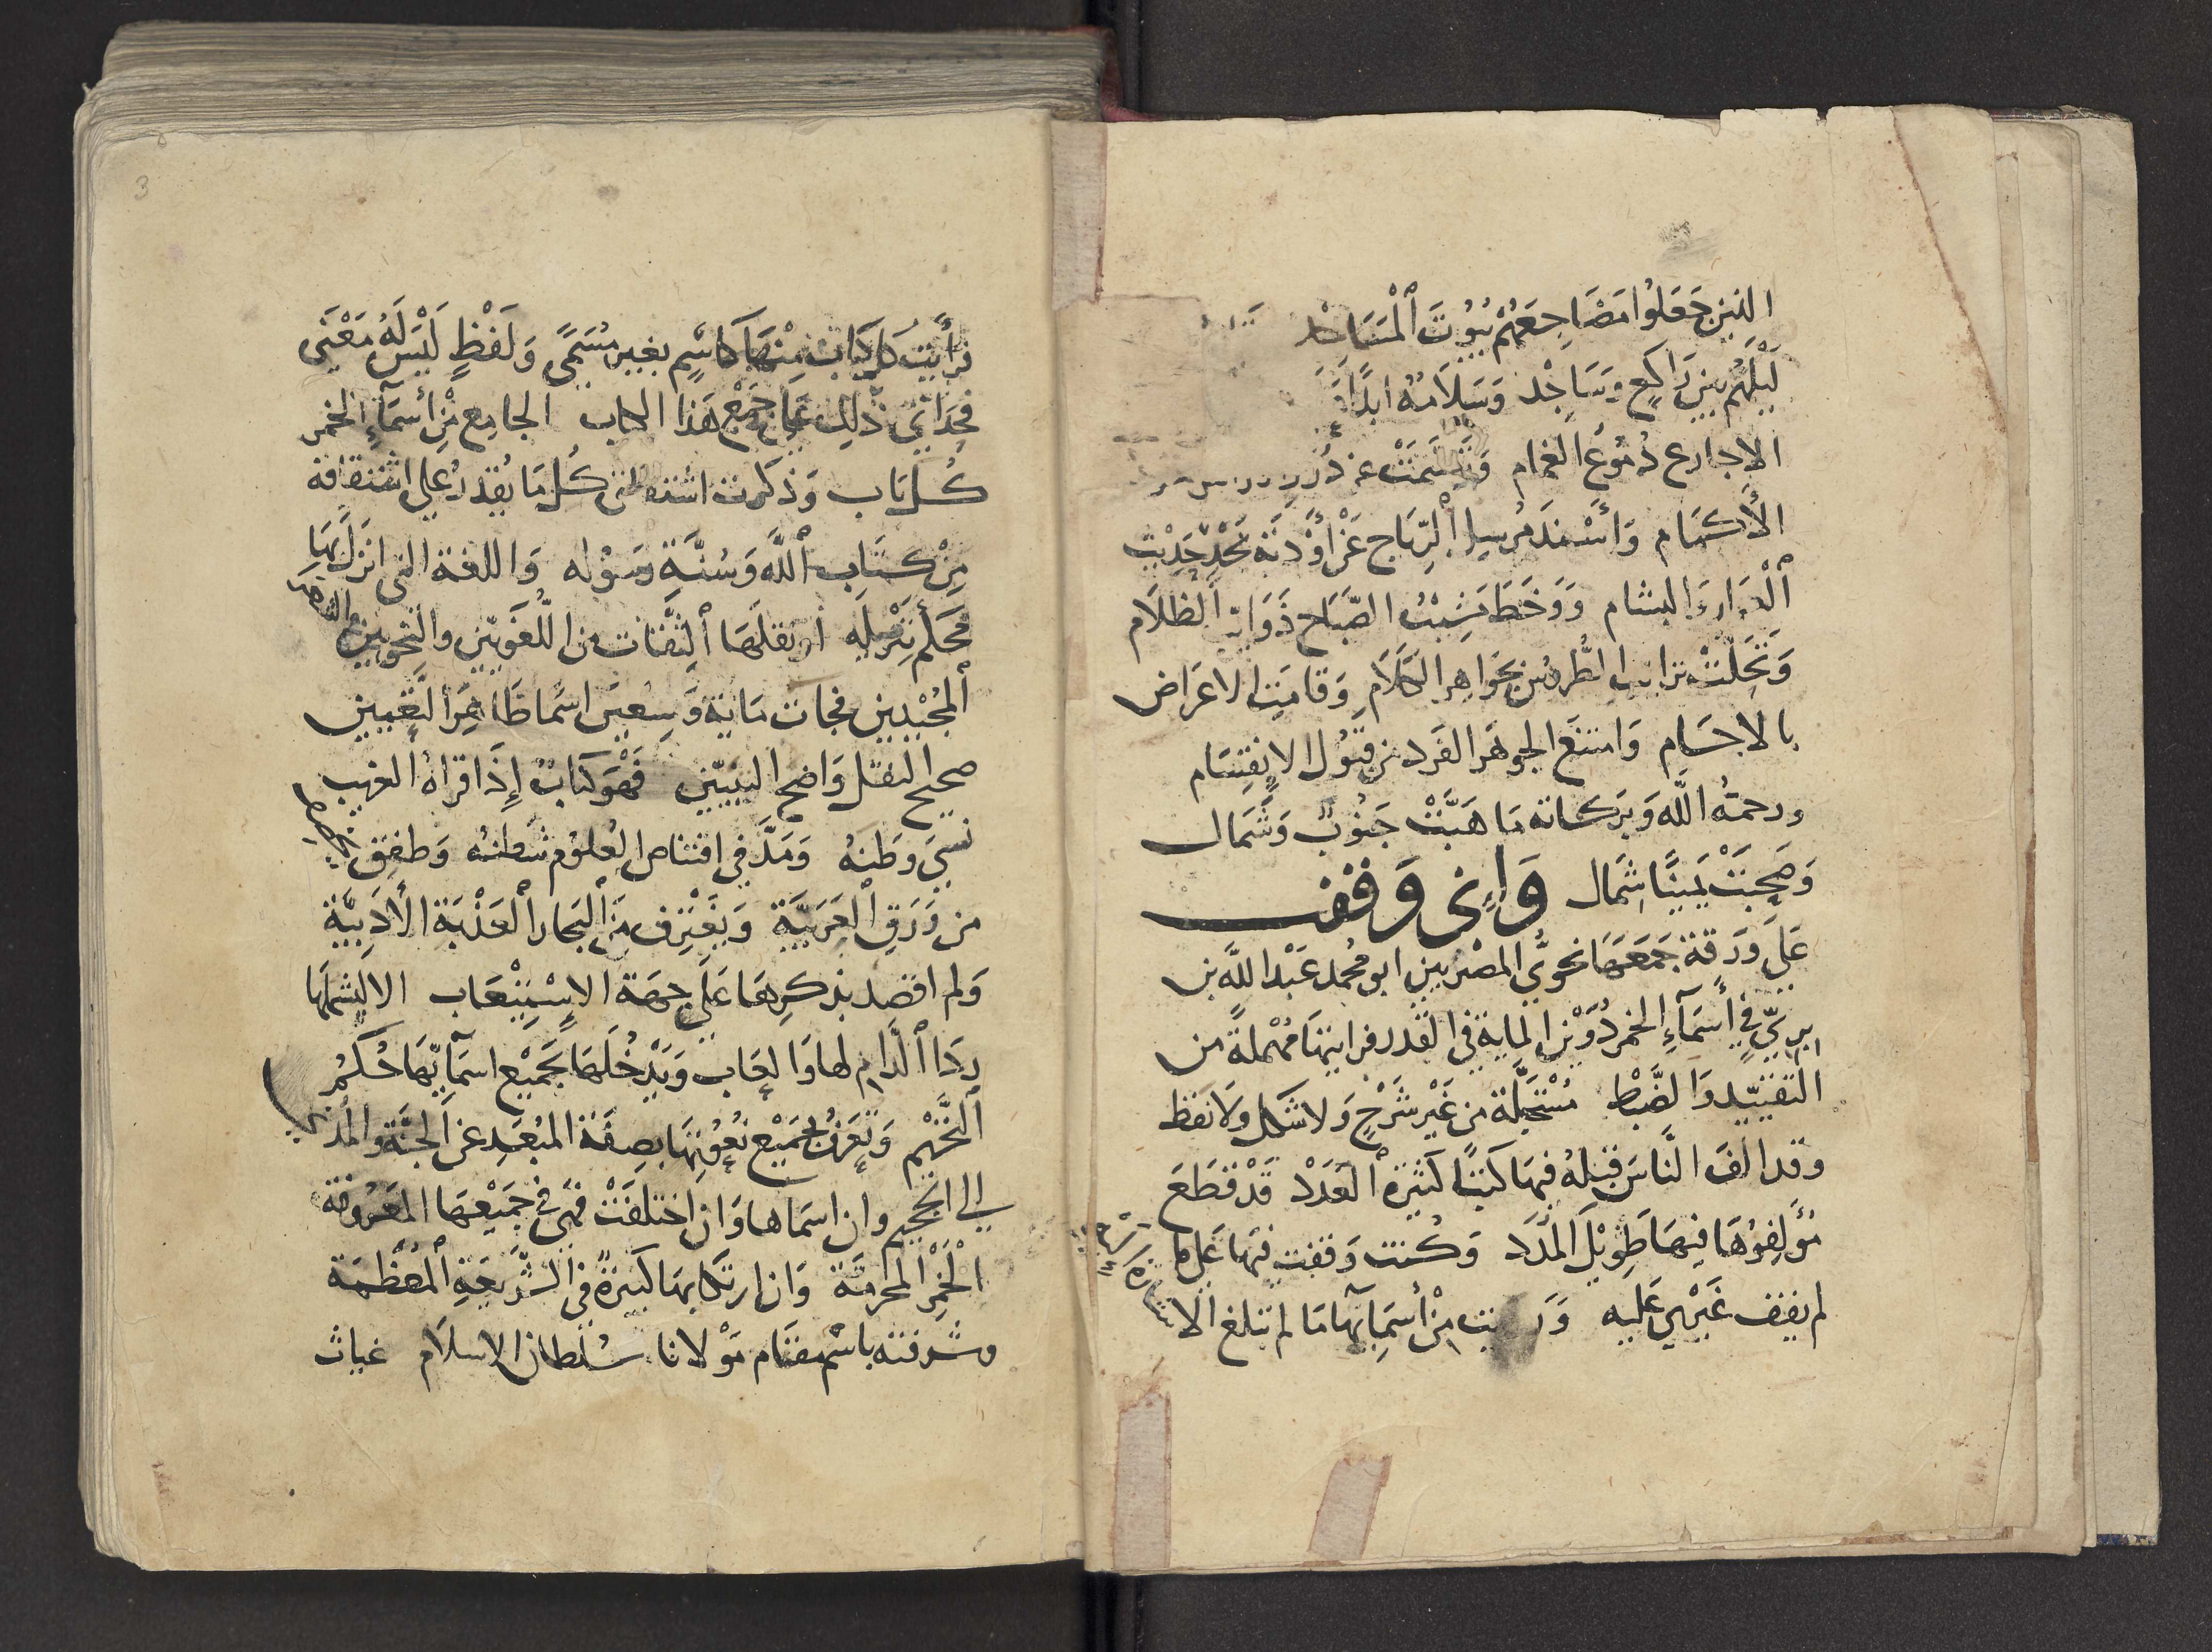 الذين جَعَلوُا مَضَاجِعَهُمْ بُيُوتَ ٱلْمَسَاجْد
لَيْلَهُم بين رَاكِعٍ وسَاجْد وَسَلَامُهُ ابدًا
الاجارع دُمُوعُ الغمام وَتَبَسَّمَتْ عن دُرَر
الأكمَام وَأَسْنَدَ مُرسِلُ ٱلرّيَاح عَنْ أوْدِيَة نَجْدٍ حَدِيْث
ٱلْعَرَارِ وَالبشام وَوَخَطَ مَشِيْبُ الصَّبَاح ذَوَايبَ الظلَام
وَتَحَلَّتْ ترايب الطُّروُسِ بجَوَاهِر الكَلَام وَقامَتِ الاعَرَاض
بالاجسَام وَامتنَع الجوهَر الفَرد من قبُول الانقِسَام
ورحمتُه اللَّه وَبَركاته مَا هَبَّتْ جَنُوبٌ وشَمَال
وَصَحِبَتْ يَمِينًا شِمَال وَإِنى وَقفت
عَلَى وَرَقة جَمَعَهَا نحوىُّ المصْريين ابو محُمد عَبْد اللَّه بن
برىّ فى أسَمَآءِ الخمر دُوْن الماية فى القدر فرايتها مُهْملةً من
التقييد وَالضَّبْط مُسْتَحِيلَة من غَيْر شَرْحٍ وَلا شكل ولا نقط
وقد الفَ النَّاسَ قبلهُ فيهَا كتبًا كَثيرة ٱلعَدَدْ قَدْ قطَعَ
مُؤَلِفُوُهَا فيهَا طِوْيْلَ المُدَد وَكُنت وَقفت منها عَلى ما
لم يقف غَيْرِى عَليه وَرَايت مْن أسَمَايهَا مَا لم تبلغ الا
فرأَيتُ كل كتابٍ مِنْهَا كاسْمٍ بغير مُسَمًّى وَلَفْظٍ لَيْسَ لَهُ مَعْنَى
فحَدَانِى ذلِكَ عَلى جَمْع هَذا الكتاب الجامِع مْن أسمَآءِ الخمر
كُل بَاب وَذكرت اشتقاق كُل مَا يُقدرُ على اشتقاقه
مِنْ كتَاب ٱللَّه وَسُنَّةِ رسَوُله وَاللغة التى انزَلَ بِهَا
مُحكَم تَنْزِيْلِهِ أو نقلَهَا ٱلثِّقات من اللُّغَويّين والنحويين
ٱلمجُيْدِين فجات مَاية وَسِعيْنَ اسًما ظَاهِرَ التَّعيين
صحيح النقل وَاضح التبيين فهْوَ كتابٌ إِذَا قراهُ الغريب
نسِىَ وطنَهُ وَمَدَّ فى اقتناص العُلوُم شطنُه وَطفِق
من وَرَقِ ٱلعَرَبيَّةِ وَيَغْتَرِف مَن ٱلبحار ٱلعَذْبَةِ الأدَبِيَّة
وَلم اقصد بذكرِهَا عَلَى جهَة الاسْتِيْعَاب الا ليشملَهَا
رِدَا ٱلذَّام لها وَالعَاب وَيَدْخُلَهَا بجَميْع اسَمآيهَا حُكمُ
ٱلتَّحْريْم وَتعرَفُ بجَمَيْع نُعُوْتِهَا بصِفَة المبُعَدِ عن الجَنَّةِ والمُدنى
الى الجحيم وان اسَماها وَان اختلفَتْ فهَى فى جَمِيْعهَا المَعْرُوفة
الْخَمْر المحرمَة وَان ارتكابهَا كَبيرَةً فى الشَّرْيعَةِ ٱلمُعَظمَة
وشرفته باسْم مقام مَوْلانا سُلطان الاسلَام غياث